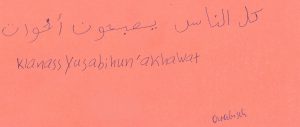 كل الناس يصبحون أخوات
Klanass yusabihun'akhawat